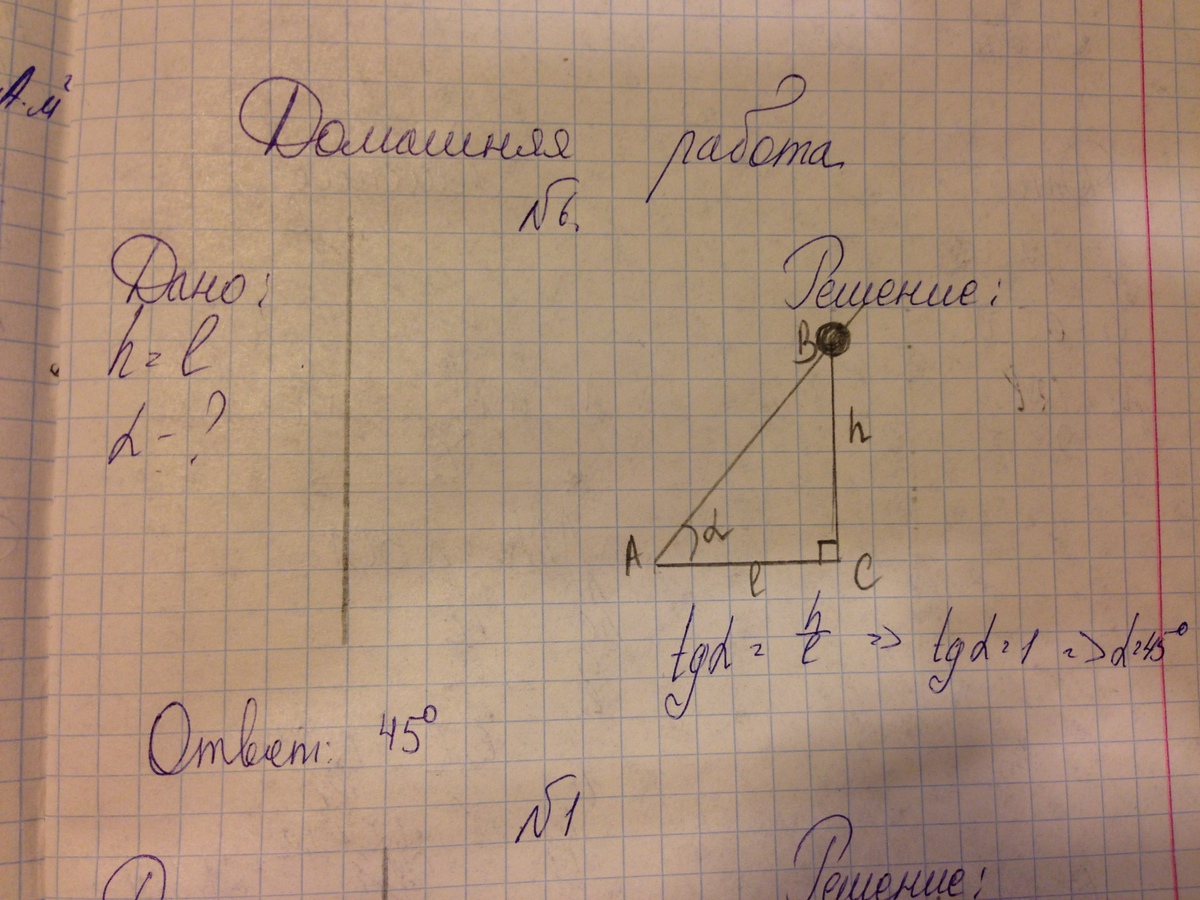 А·м²
Домашняя работа
№6.
Дано:
h = l
α - ?
Решение:
B
h
A
α
l
C
tgα = h/l => tgα = 1 => α=45°
Ответ: 45°
№1
Решение: